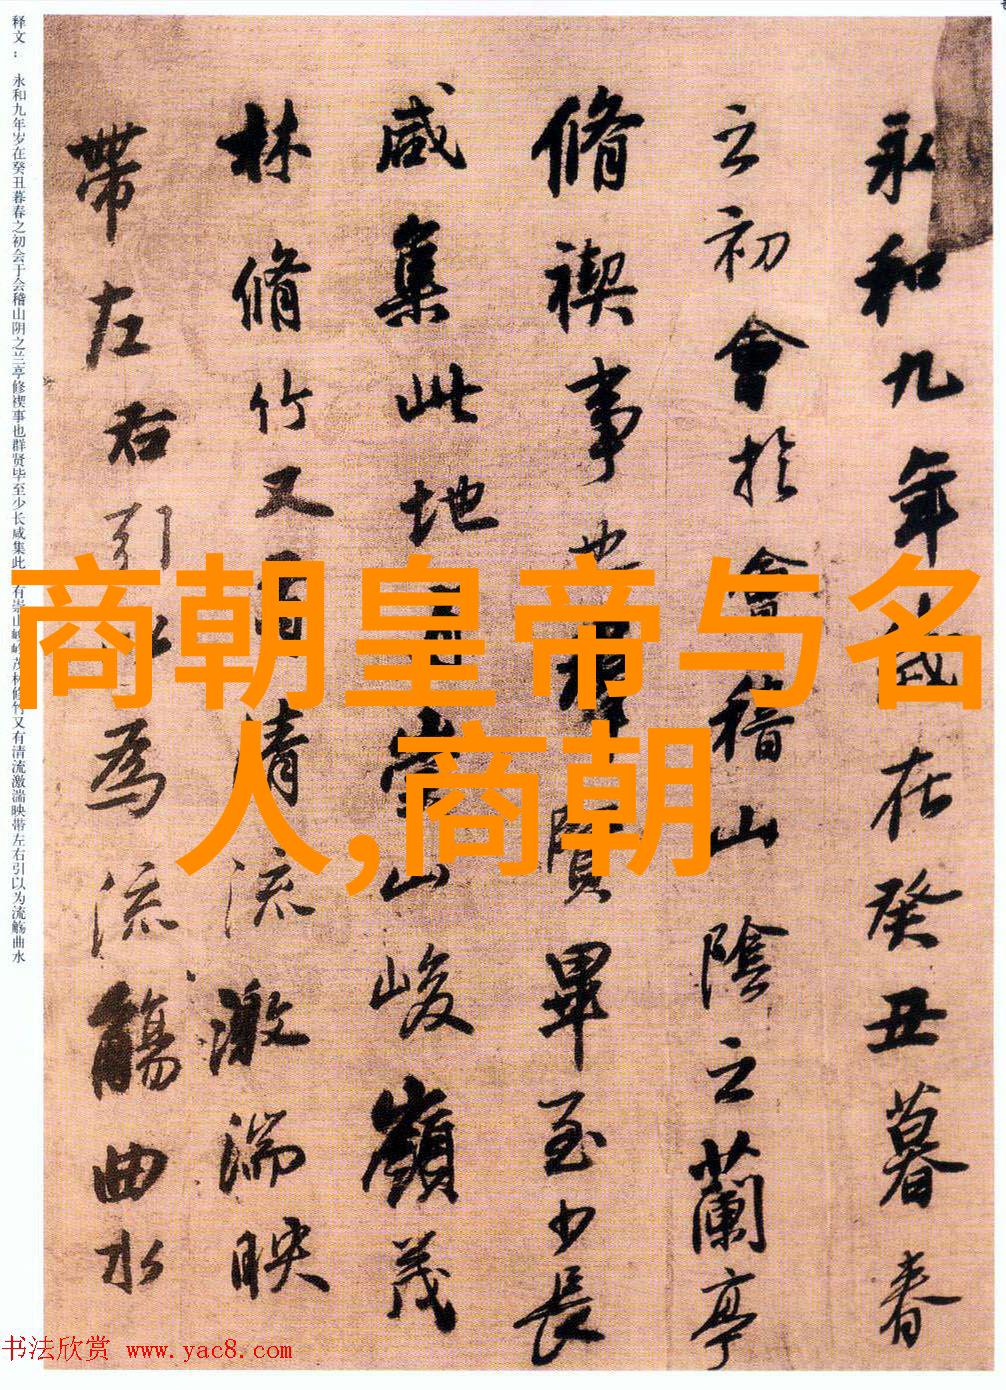 商朝皇帝与名
人,商朝
永和九年歲在癸丑暮春
之初會於會稽山陰之蘭亭
脩禊事也羣賢畢至少長
咸集此地有崇山峻嶺茂
林脩竹又有清流激湍映
帶左右引以為流觴曲水
释文： 永和九年岁在癸丑暮春之初会于会稽山阴之兰亭修禊事也群贤毕至少长咸集此 有崇山峻岭茂林修竹又有清流激湍映带左右引以为流觞曲水
书法欣赏 www.yac8.com